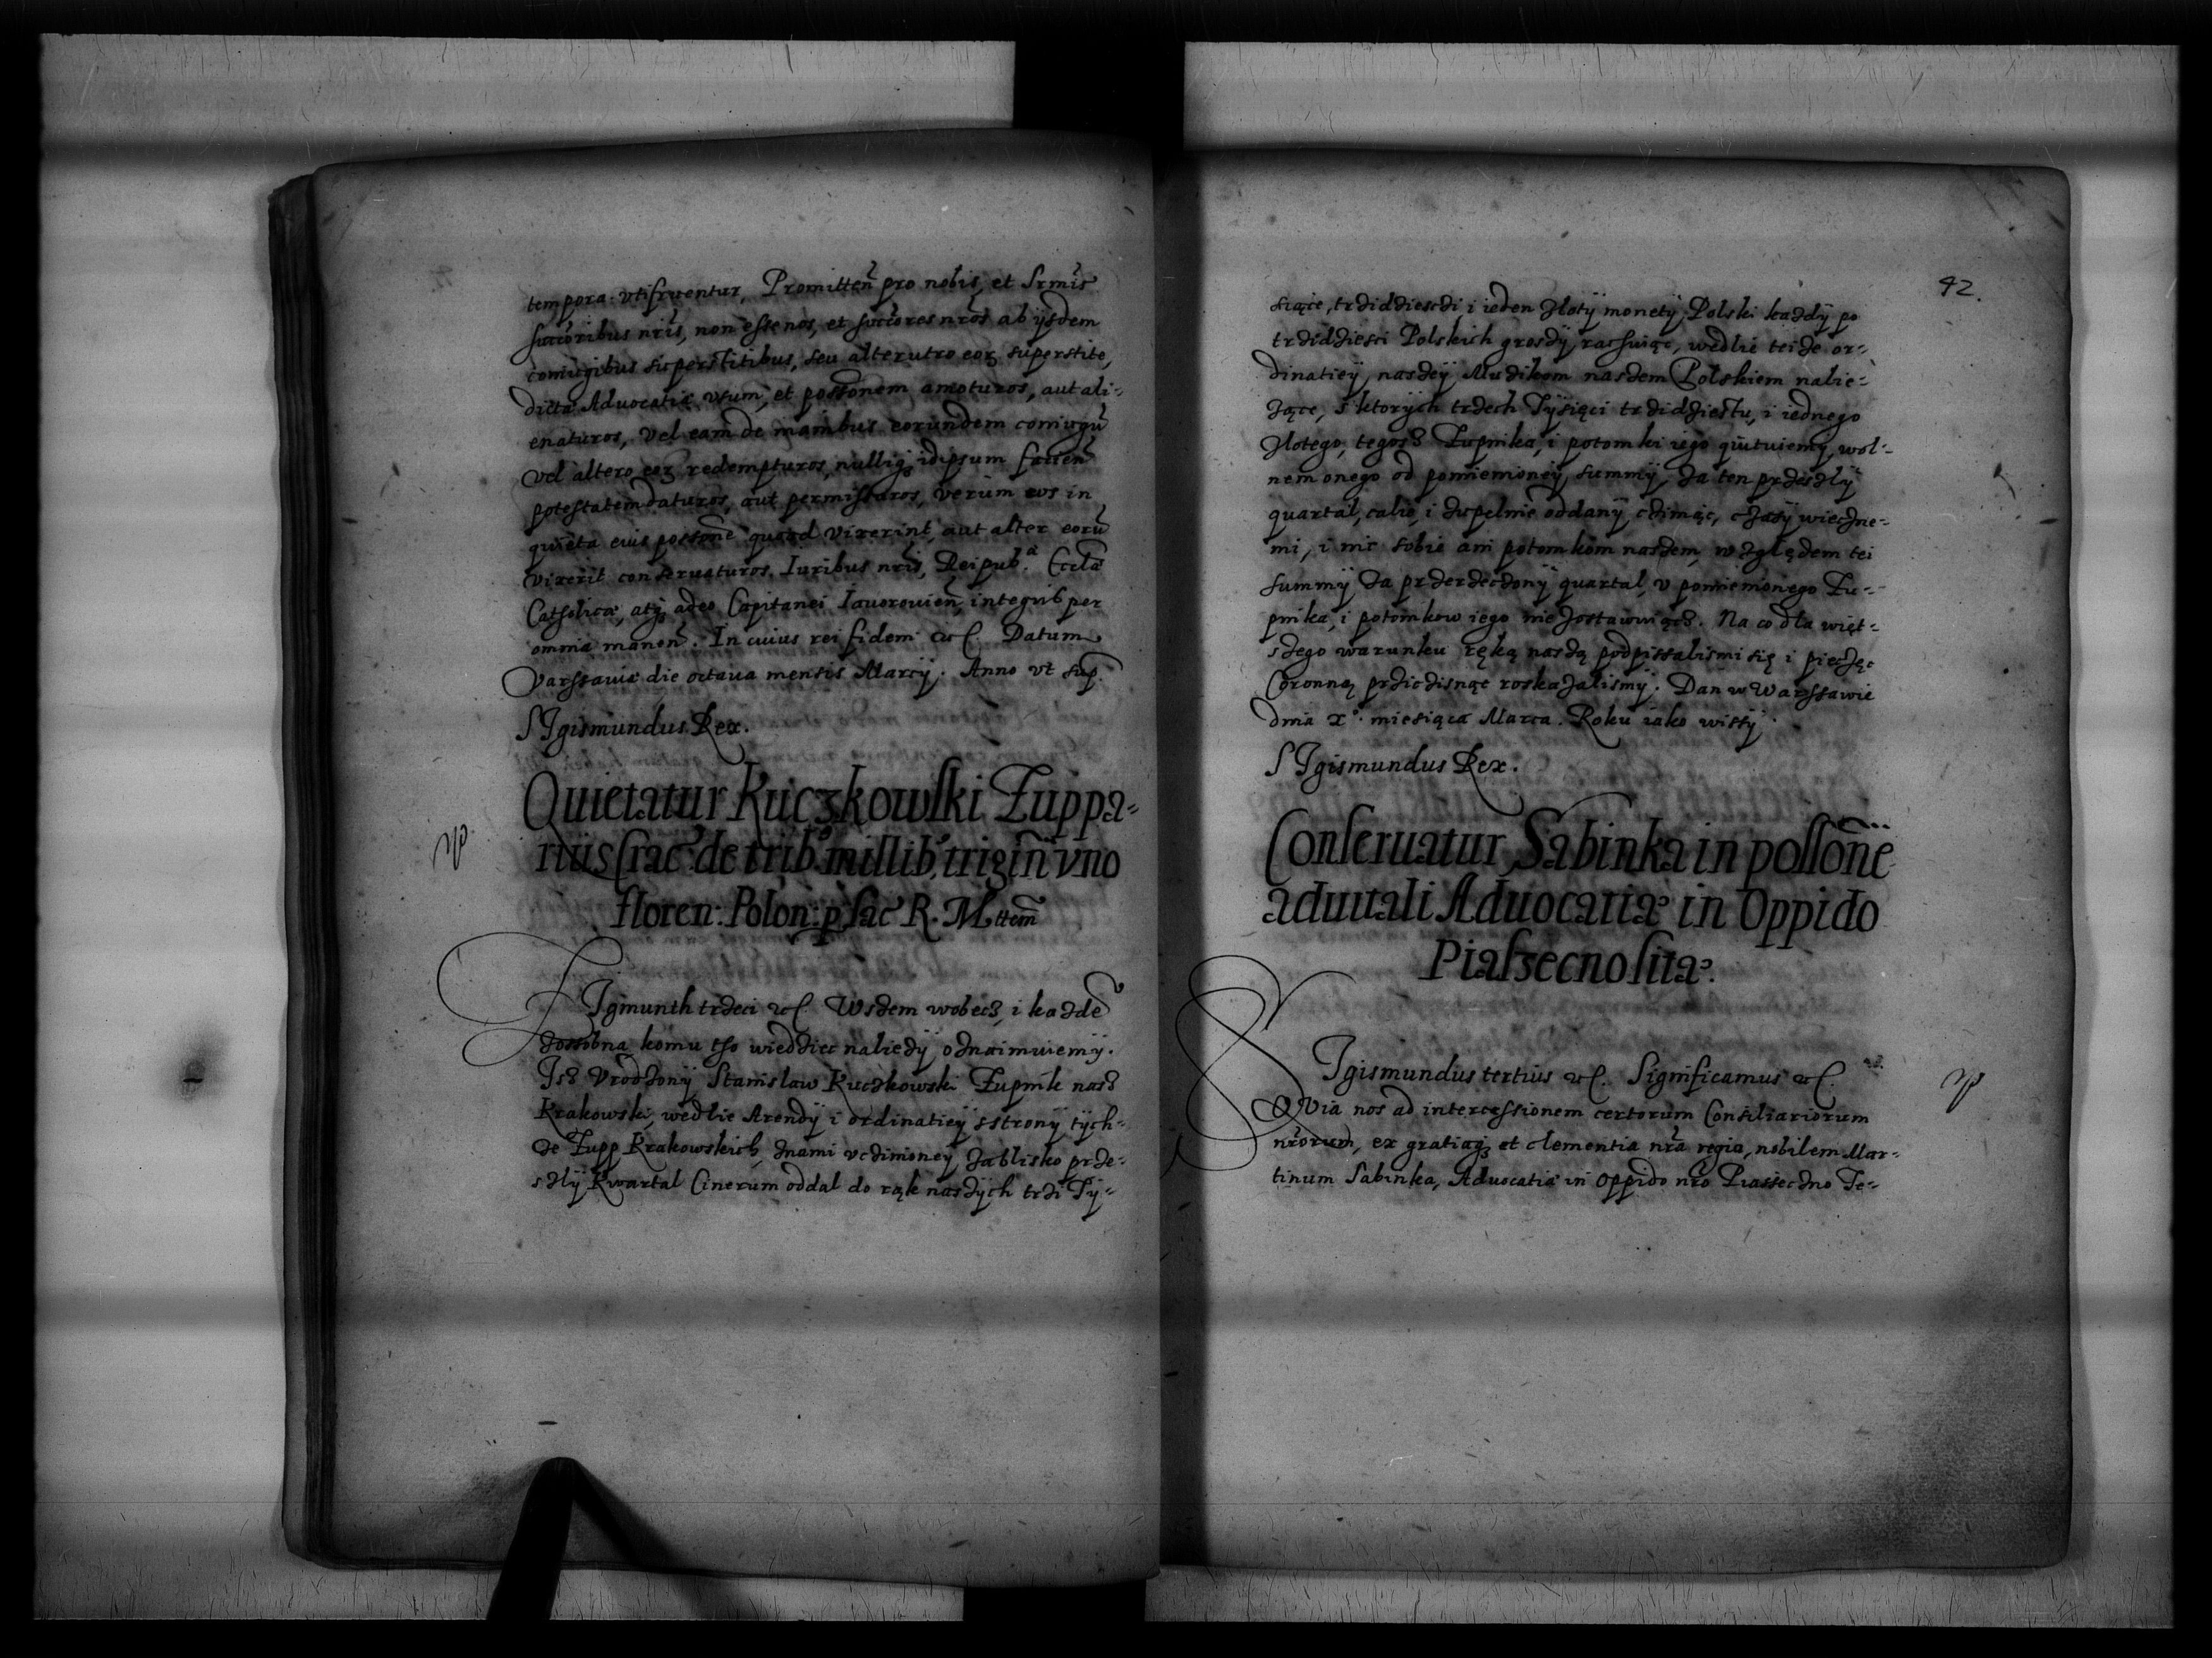 tempora utifruentur, Promitteñ pro nobis, et Srmis
succoribus nris, non esse nos, et succores nros ab ijsdem
coniugibus superstitibus, seu alterutro eorz superstite,
dictæ Aduocatiæ vsum, et possonem amoturos, aut ali-
enaturos, vel eam de manibus eorundem coniugũ
vel altero eorz redempturos, nulliqz idipsum facieñ
potestatem daturos, aut permissuros, verum eos in
quieta eius possone quoad vixerint, aut alter eorũ
vixerit conseruaturos. Iuribus nris, Reipub.ᵃ Eccla
Catholicæ, atqz adeo Capitanei Iauorouieñ, integris per
omnia maneñ. In cuius rei fidem etc. Datum
Varssauiæ die octaua mensis Marcij. Anno vt sup.
SIgismundus Rex.
Quietatur Kuczkowski Zuppa-
rius Crac. de trib. millib. trigiñ vno
floren: Polon: p sac R. Mttem
ZIgmunth trzeci etc. Wszem wobecz, i kazdē
zossobna komu tho wiedziec naliezÿ oznaimuiemy.
Isz Vrodzonÿ Stanislaw Kuczkowski Zupnik nasz
Krakowski, wedlie Arendÿ i ordinatieÿ s stronÿ tych-
ze Zupp Krakowskich, znami vczinioneÿ zablisko prze-
szlÿ Kwartal Cinerum oddal do rąk naszÿch trzi Tÿ-
42.
siące, trzidziesczi, i ieden zlotÿ monetÿ Polski kazdÿ po
trzidziesci Polskich groszÿ rachuiąc, wedlie teize or-
dinatieÿ naszeÿ Muzikom naszem Polskiem nalie-
zące, s ktorÿch trzech Tÿsięci trzidziestu, i iednego
zlotego, tegosz Zupnika, i potomki iego quituiemÿ, wol-
nem onego od pomienioneÿ summÿ, za ten przeszlÿ
quartal, calie, i zupelnie oddanÿ cziniąc, czasÿ wieczne-
mi, i nic sobie ani potomkom naszem, względem tei
summÿ za przerzeczonÿ quartal, v pomienionego Zu-
pnika, i potomkow iego nie zostawuiącz. Na co dla więt-
szego warunku ręką naszą podpissalismi się i pieczęc
Coronną przicisnąc roskazalismÿ. Dan w Warssawie
dnia xᵒ. miesiąca Marca. Roku iako wissÿ.
SIgismundus Rex.
Conseruatur Sabinka in possone
aduitali Aduocatiæ in Oppido
Piaseczno sitæ.
SIgismundus tertius etc. Significamus etc.
QVia nos ad intercessionem certorum Consiliariorum
nrorum, ex gratiaqz et clementia nra regia, nobilem Mar-
tinum Sabinka, Aduocatiæ in oppido nro Piasseczno Te-